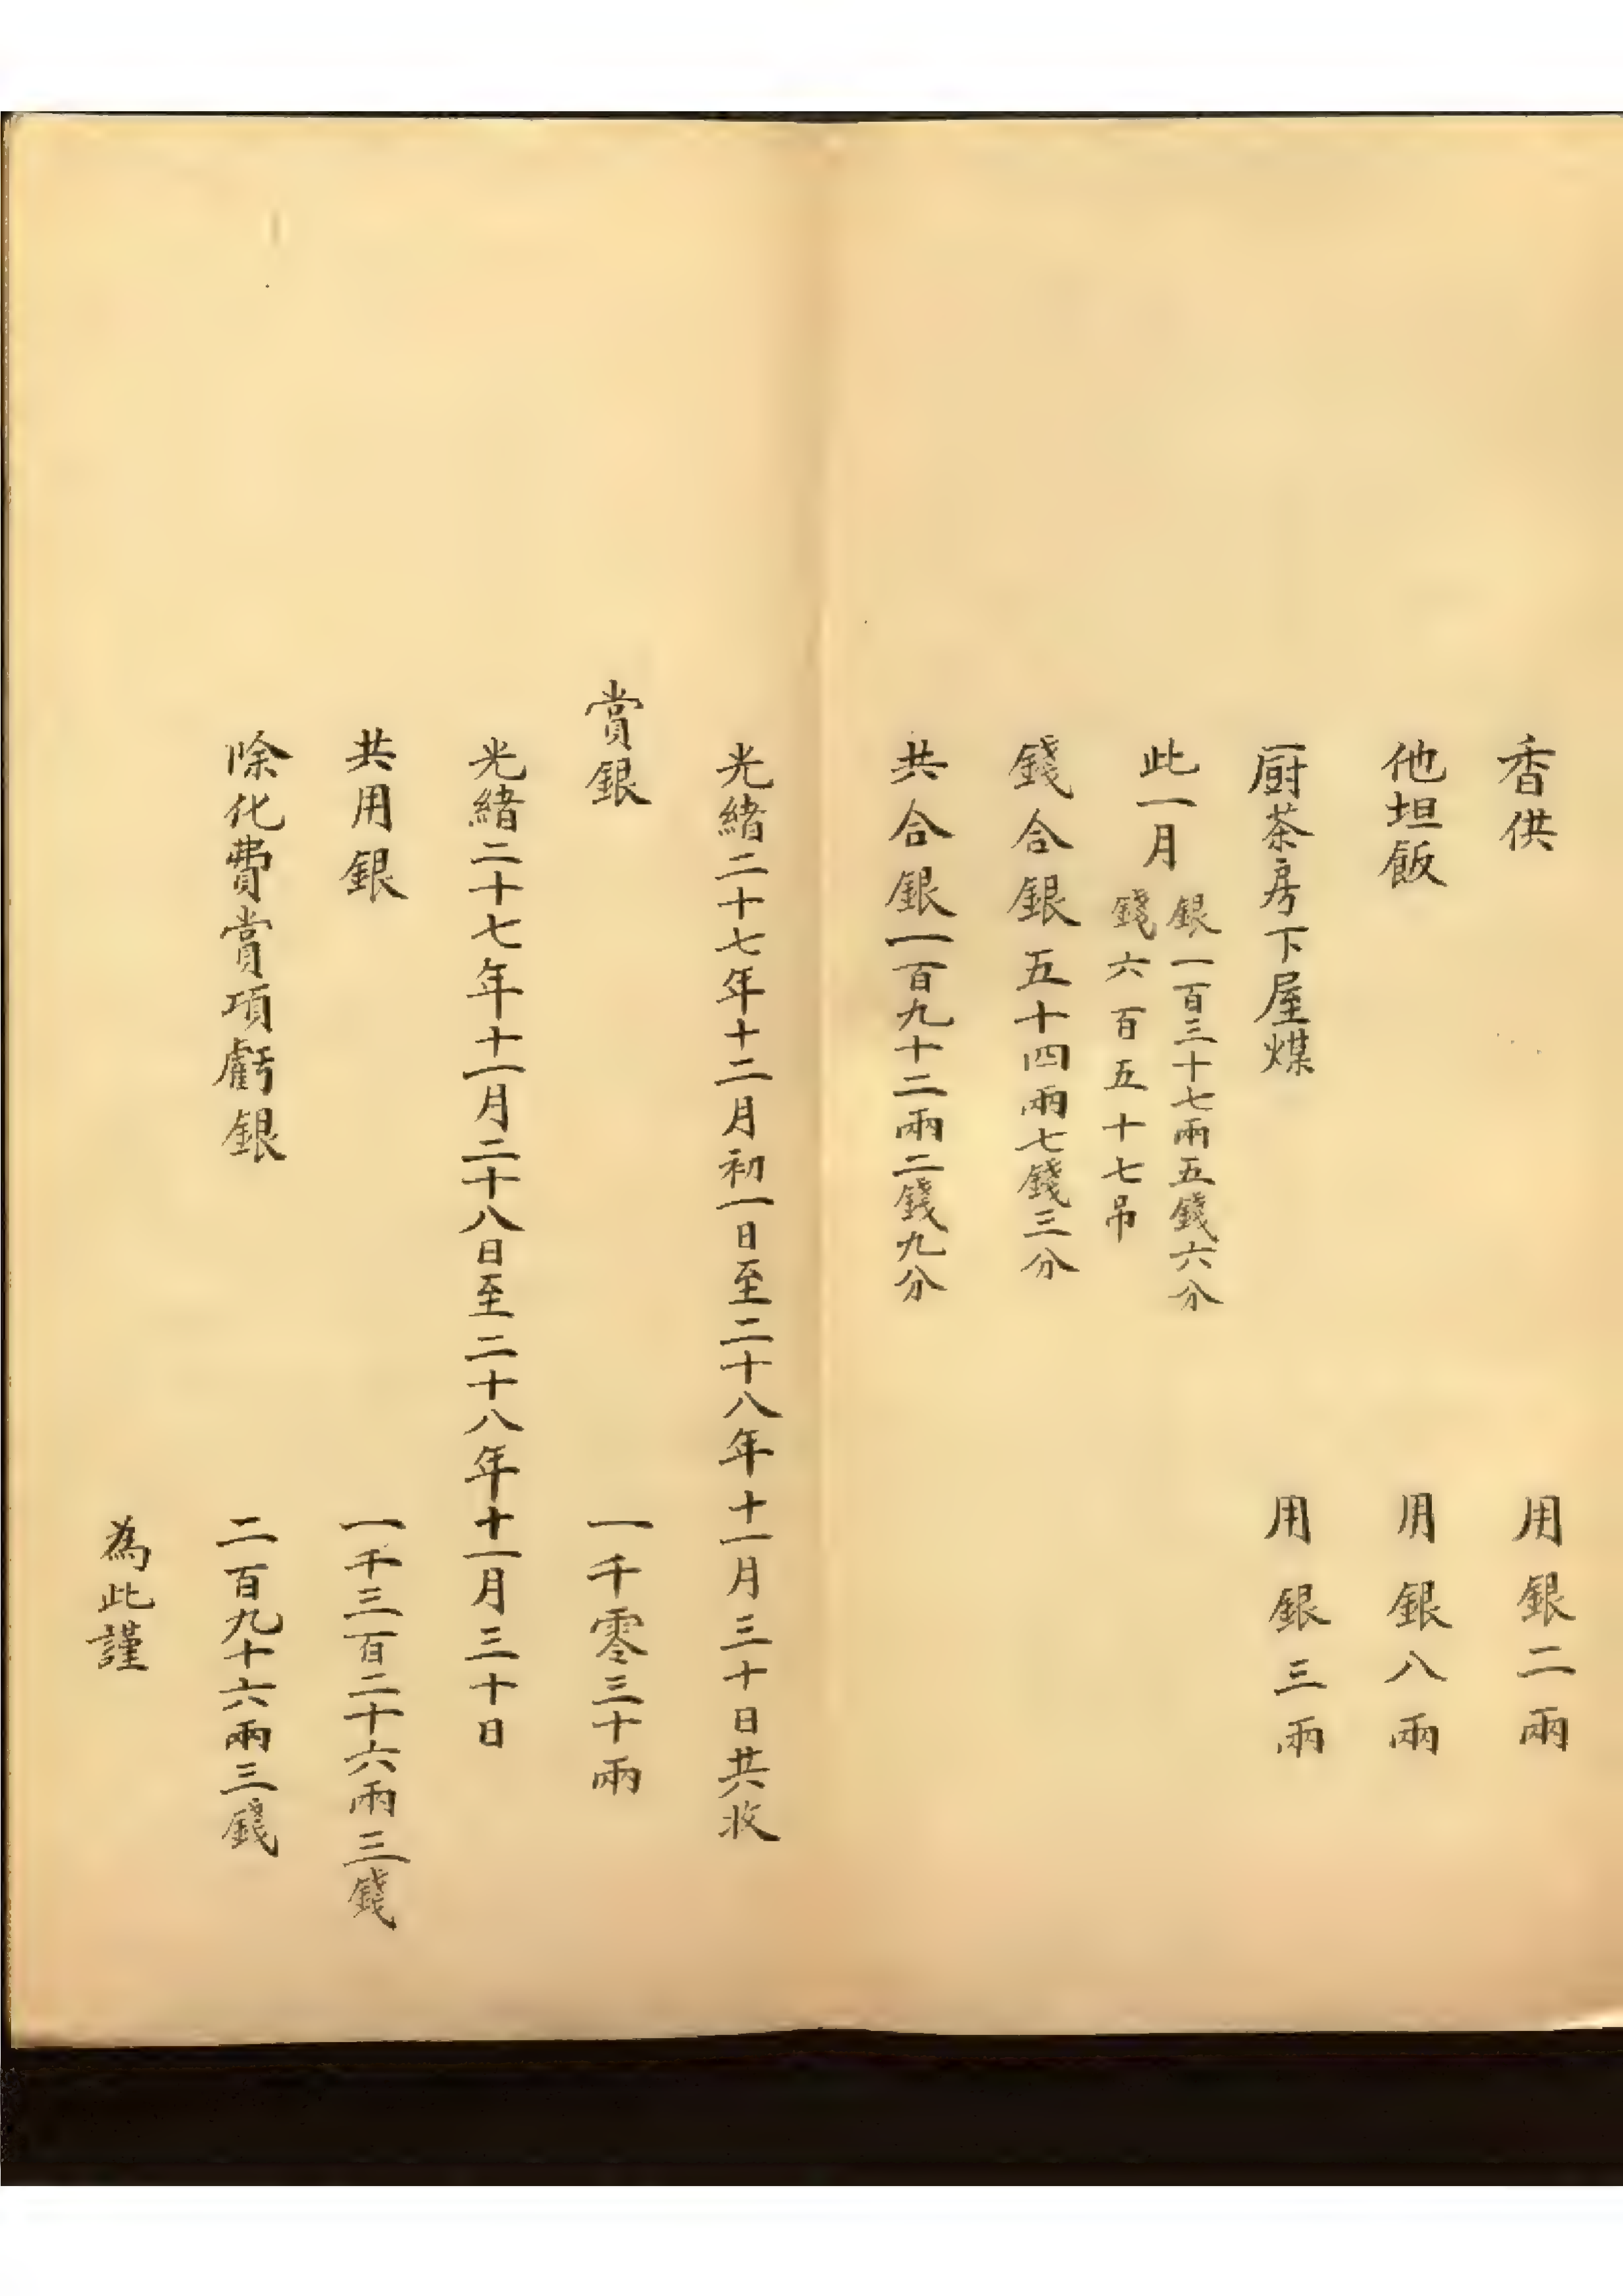 香供 用銀二兩
他坦飯 用銀八兩
厨茶房下屋煤 用銀三兩
此一月
銀一百三十七兩五錢六分
錢六百五十七吊
錢合銀五十四兩七錢三分
共合銀一百九十二兩二錢九分
光緒二十七年十二月初一日至二十八年十一月三十日共收
賞銀 一千零三十兩
光緒二十七年十一月二十八日至二十八年十一月三十日
共用銀 一千三百二十六兩三錢
除化費賞項虧銀 二百九十六兩三錢
為此謹